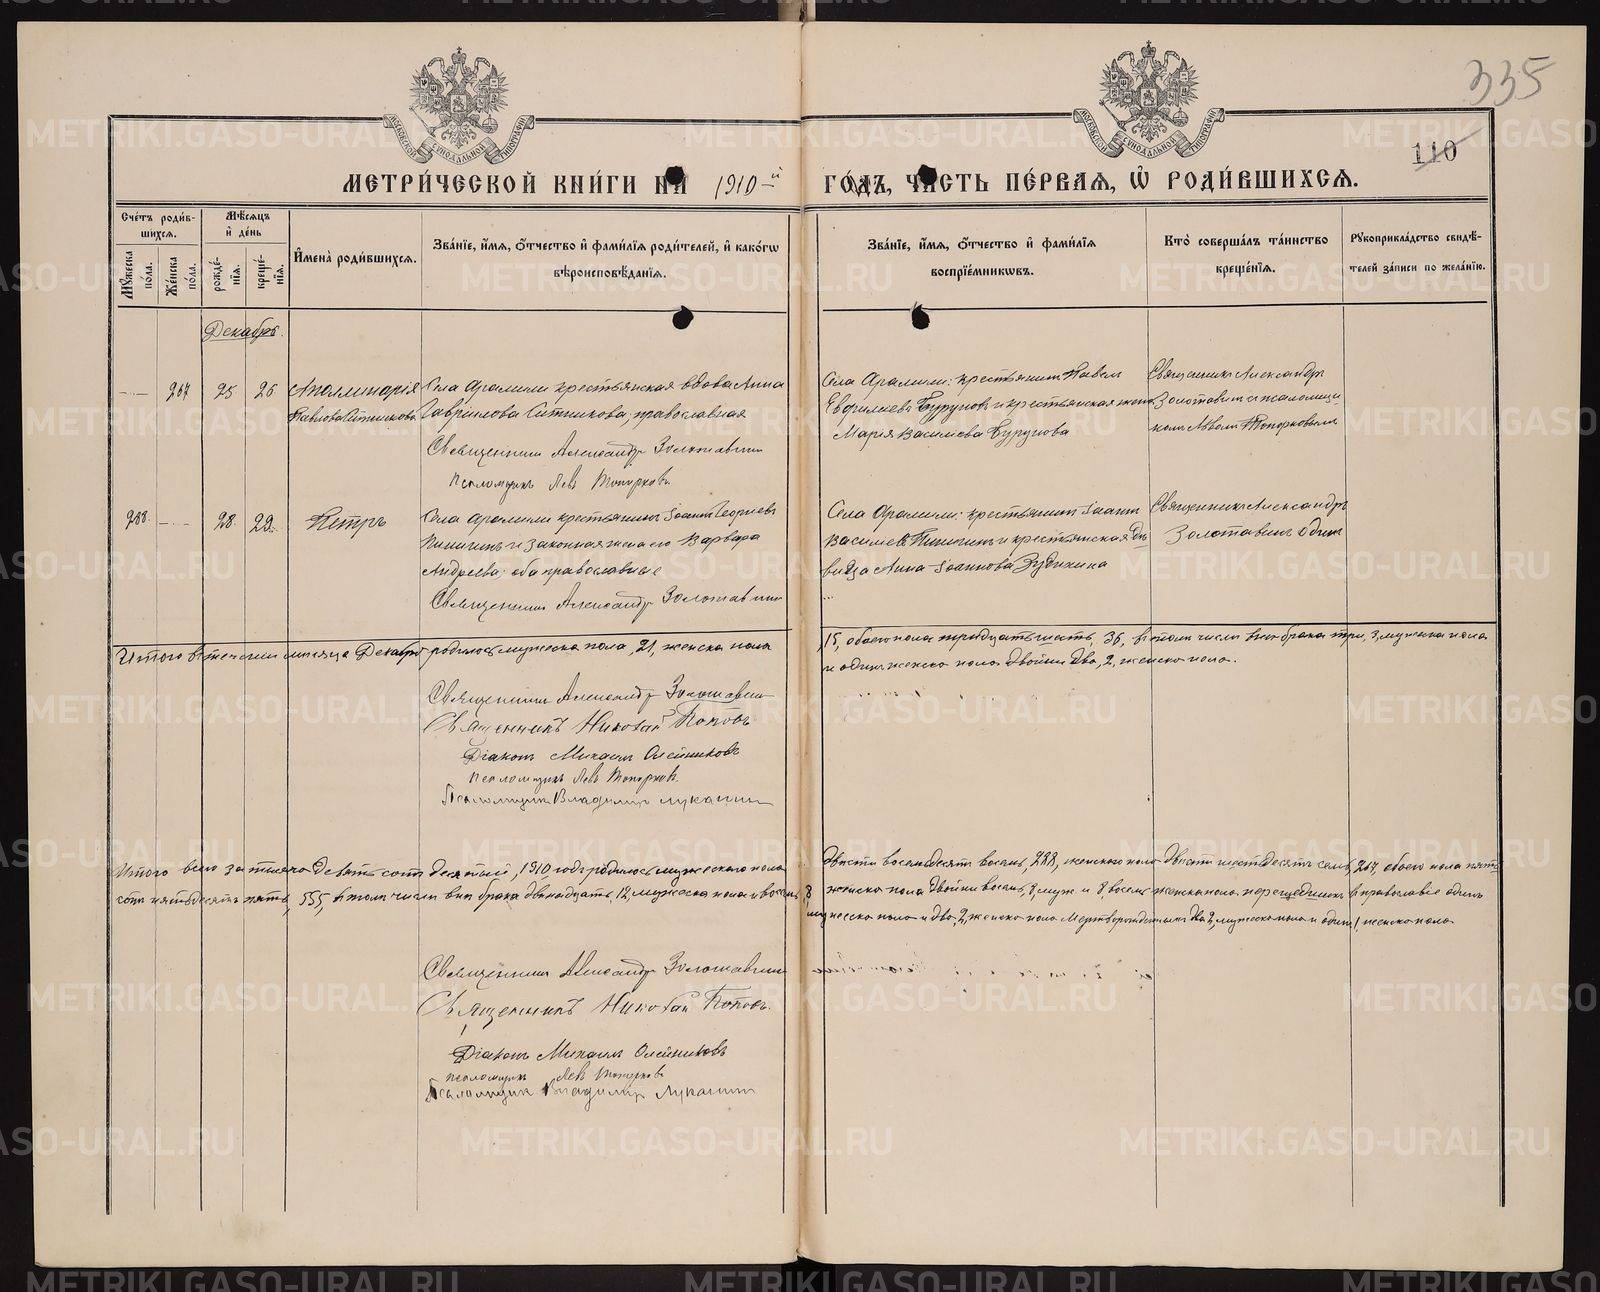 335
110
МЕТРИ́ЧЕСКОЙ КНИ́ГИ НА 1910-й ГО́ДЪ, ЧА́СТЬ ПЕ́РВАЯ, Ѡ҆ РОДИ́ВШИХСЯ.
Сче́тъ роди́вшихся.
Мꙋ́жеска по́ла.
Же́нска по́ла.
Мѣ́сяцъ и҆ де́нь
рожде́нїя.
креще́нїя.
И҆мена̀ роди́вшихся.
Зва́нїе, и҆́мя, ѻ҆́тчество и҆ фами́лїя роди́телей, и҆ како́гѡ вѣроисповѣ́данїя.
Зва́нїе, и҆́мя, ѻ҆́тчество и҆ фами́лїя воспрїе́мникѡвъ.
Кто̀ соверша́лъ та́инство креще́нїя.
Рꙋкоприкла́дство свидѣ́телей за́писи по жела́нїю.
Декабрь.
267 25 26
Аполлинарія
Павлова Ситникова
Села Арамили крестьянская вдова Анна
Гаврилова Ситникова, православная
Священникъ Александръ Золотавинъ
Псаломщикъ Левъ Топорковъ
Села Арамили: крестьянинъ Павелъ
Бурухинъ и крестьянская жена
Марія Василіева
Священникъ Александръ
Золотавинъ съ псаломщи
комъ Львомъ Топорковымъ
288 28 29
Петръ
Села Арамили крестьянинъ Іоаннъ Георгіевъ
и законная жена его Варвара
Андреева, оба православные
Священникъ Александръ Золотавинъ
Села Арамили: крестьянинъ Іоаннъ
Василіевъ и крестьянская дѣ
вица Анна Іоаннова
Священникъ Александръ
Золотавинъ одинъ
Итого въ теченіи мѣсяца Декабря родилось мужеска пола, 21, женска пола
15, обоего пола тридцать шесть, 36, въ томъ числѣ внѣ брака три, 3, мужеска пола
и одинъ женска пола. Двойни два, 2, женска пола.
Священникъ Александръ Золотавинъ
Священникъ Николай Поповъ
Діаконъ Михаилъ Олейниковъ
Псаломщикъ Левъ Топорковъ
Псаломщикъ Владимиръ Луканинъ
Итого всего за тысяча девять сотъ десятый, 1910, годъ родилось мужескаго пола
двѣсти восемьдесятъ восемь, 288, женскаго пола двѣсти шестьдесятъ семь, 267, обоего пола пять
сотъ пятьдесятъ пять, 555, въ томъ числѣ внѣ брака двѣнадцать, 12, мужеска пола и восемь, 8
женска пола. Двойни восемь, 8, муж. и 8, восемь женска пола. перешедшихъ въ православіе одинъ
мужеска пола и два, 2, женска пола. Мертворожденныхъ два, 2, мужеска пола и одинъ, 1, женска пола.
Священникъ Александръ Золотавинъ
Священникъ Николай Поповъ.
Діаконъ Михаилъ Олейниковъ
Псаломщикъ Левъ Топорковъ
Псаломщикъ Владимиръ Луканинъ
METRIKI.GASO-URAL.RU